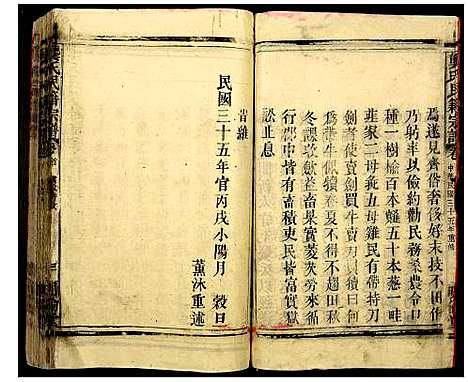 焉遂見齊俗奢侈好末技不田作
乃躬率以儉約勸民務業農令口
種一樹榆百本䪥五十本葱一畦
韭家二母彘五母雞民有帶持刀
劍者使賣劍買牛賣刀買犢曰何
為帶牛佩犢春夏不得不趨田秋
冬課收斂益畜果實菱芡勞來循
行郡中皆有畜積吏民皆富實獄
訟止息
昔維
民國三十五年官丙戌小陽月　穀旦
薰沐重述